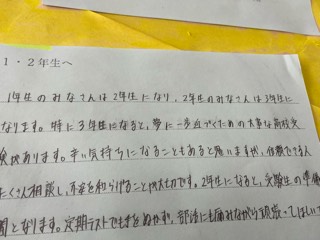 1・2年生へ
1年生のみなさんは2年生になり、2年生のみなさんは3年生に
なります。特に3年生になると、夢に一歩近づくための大事な高校受
験があります。辛い気持ちになることもあると思いますが、信頼できる人
たくさん相談し、不安を和らげることが大切です。2年生になると、受験生の準備
間となります。定期テストでも手をぬかず、部活にも励みながら頑張ってほしい